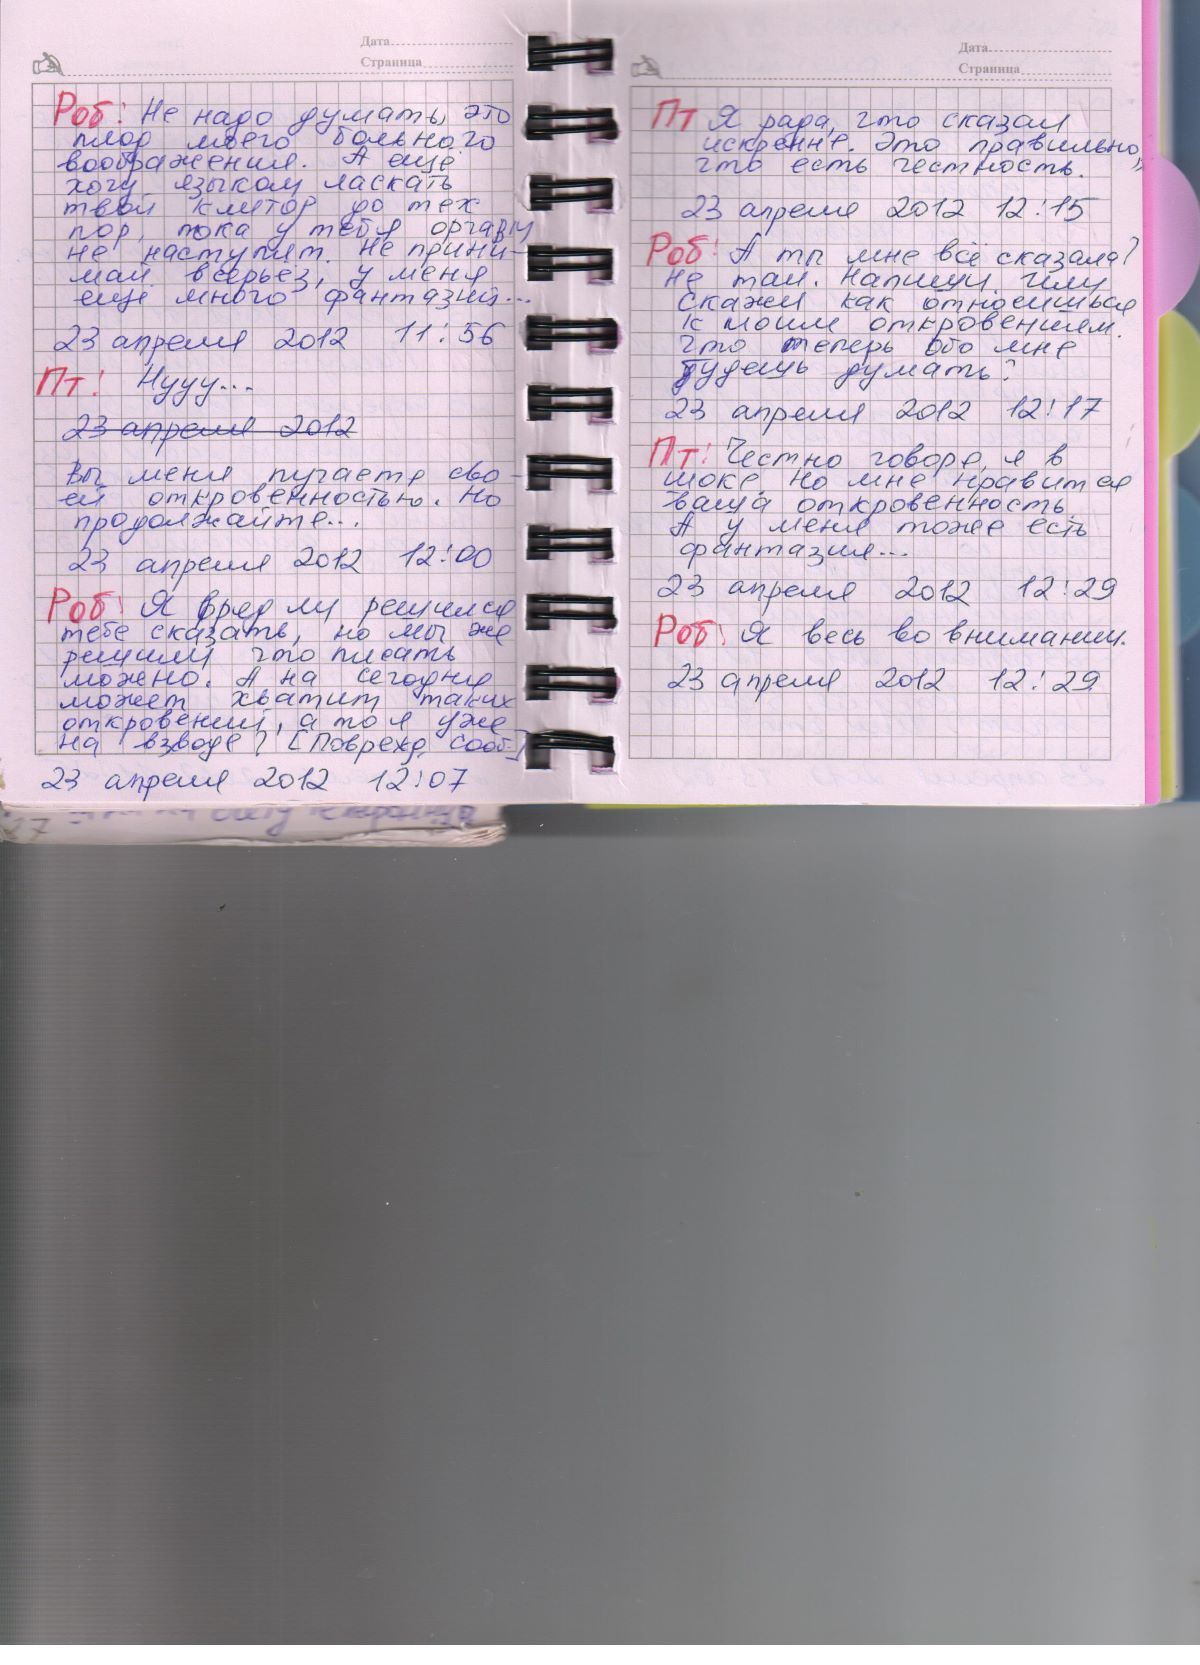 Дата
Страница
Роб: Не надо думать, это
плод моего больного
воображения. А ещё
хочу языком ласкать
твой клитор до тех
пор, пока у тебя оргазм
не наступит. Не прини-
май всерьез, у меня
ещё много фантазий...
23 апреля 2012 11:56
Пт: Нууу...
23 апреля 2012
Вы меня пугаете сво-
ей откровенностью. Но
продолжайте...
23 апреля 2012 12:00
Роб: Я вряд ли решился
тебе сказать, но мы же
решили что писать
можно. А на сегодня
может хватит таких
откровений, а то я уже
на взводе? [Поврежд. сооб.]
23 апреля 2012 12:07
Дата
Страница
Пт Я рада, что сказали
искренне. Это правильно,
что есть честность.
23 апреля 2012 12:15
Роб: А ты мне всё сказала?
Не таи. Напиши. Или
скажи как относишься
к моим откровениям.
Что теперь обо мне
будешь думать?
23 апреля 2012 12:17
Пт: Честно говоря, я в
шоке, но мне нравится
ваша откровенность.
А у меня тоже есть
фантазия...
23 апреля 2012 12:29
Роб: Я весь во внимании.
23 апреля 2012 12:29